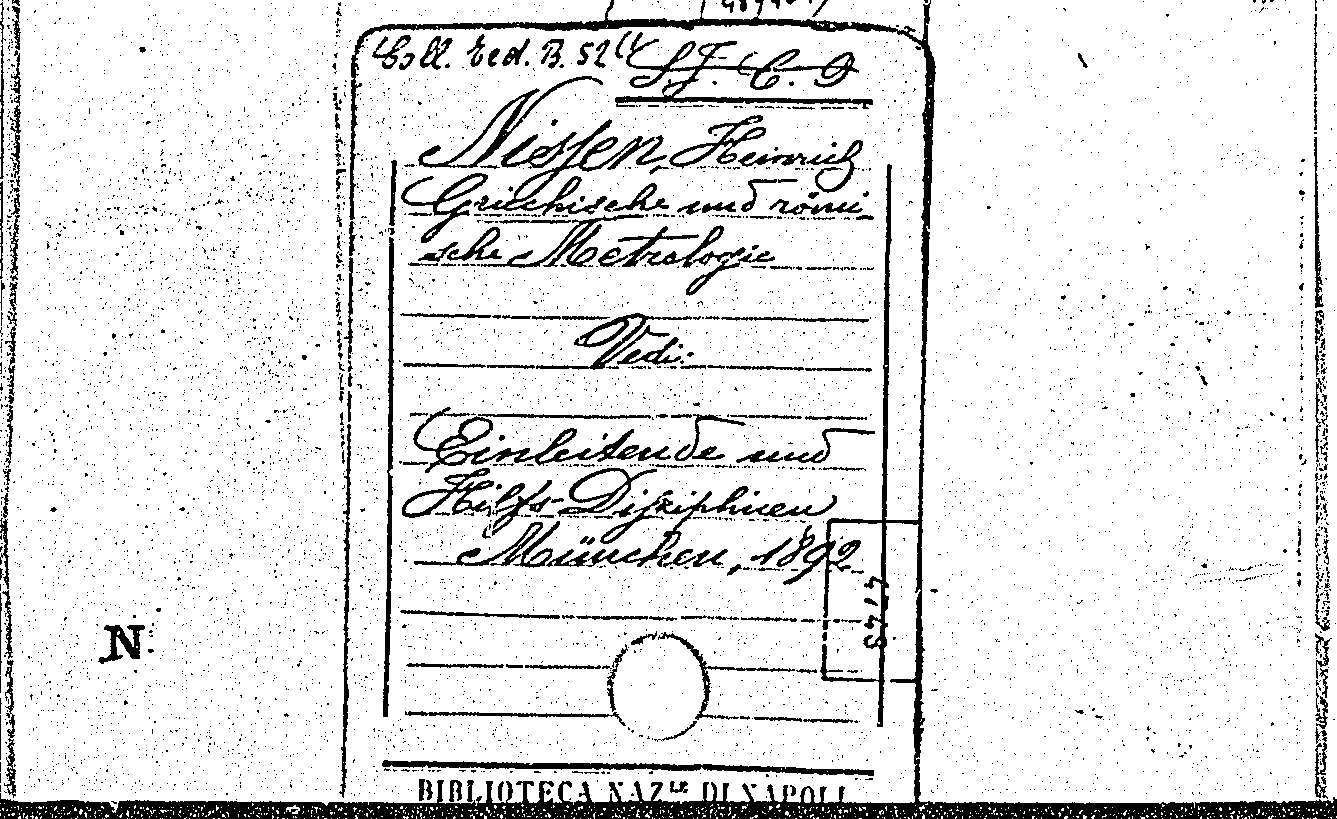 Coll. Ted. B. 52
S.F. C. 9
Nissen, Heinrich
Griechische und römi
sche Metrologie
Vedi:
Einleitende und
Hilfs-Disziplinen
München, 1892
N
BIBLIOTECA NAZLE DI NAPOLI